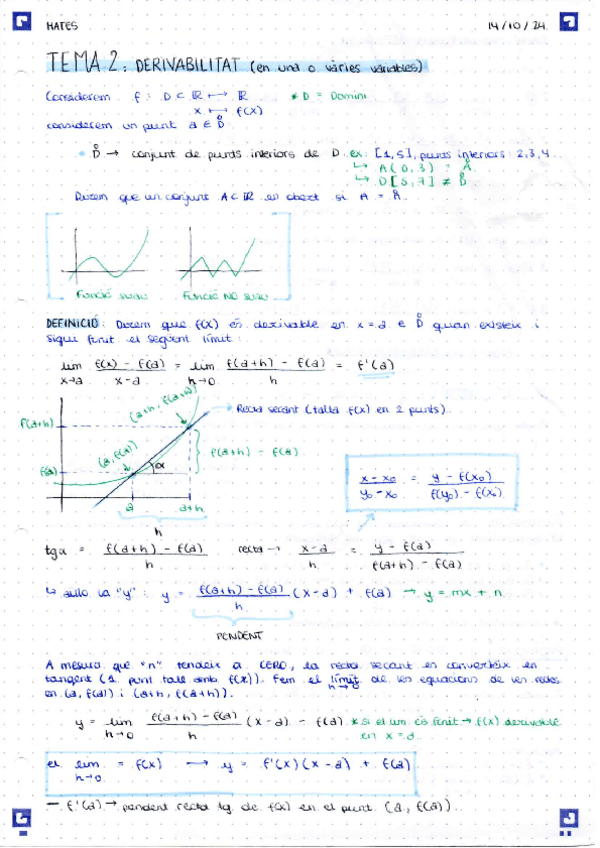 MATES 14/10/24
TEMA 2: DERIVABILITAT (en una o vàries variables)
Considerem f: D ⊂ ℝ ⟼ ℝ * D = Domini
x ⟼ f(x)
considerem un punt a ∈ D̊
• D̊ → conjunt de punts interiors de D. ex: [1,5], punts interiors: 2,3,4...
↳ A(0,3) = Å
↳ D[5,7] ≠ D̊
Dizem que un conjunt A⊂ℝ es obert si A = Å.
Funció suau Funció NO suau
DEFINICIÓ: Dizem que f(x) és derivable en x=a ∈ D̊ quan existeix i
sigui finit el següent límit:
lim x→a f(x) - f(a) / x-a = lim h→0 f(a+h) - f(a) / h = f'(a)
(a+h, f(a+h))
Recta secant (talla f(x) en 2 punts).
f(a+h)
(a, f(a))
f(a+h) - f(a)
f(a)
α
x-x₀ / y₀-x₀ = y-f(x₀) / f(y₀)-f(x₀)
a a+h
h
tgα = f(a+h) - f(a) / h recta → x-a / h = y - f(a) / f(a+h) - f(a)
↳ aïllo la "y": y = f(a+h) - f(a) / h (x-a) + f(a) → y = mx + n
PENDENT
A mesura que "n" tendeix a CERO, la recta secant es converteix en
tangent (1 punt tall amb f(x)). Fem el límit h→0 de les equacions de les rectes
en (a, f(a)) i (a+h, f(a+h)).
y = lim h→0 f(a+h) - f(a) / h (x-a) - f(a) * si el lim és finit → f(x) derivable
en x=a
el lim h→0 = f(x) ⟶ y = f'(x)(x-a) + f(a)
— f'(a) → pendent recta tg. de f(x) en el punt (a, f(a)).